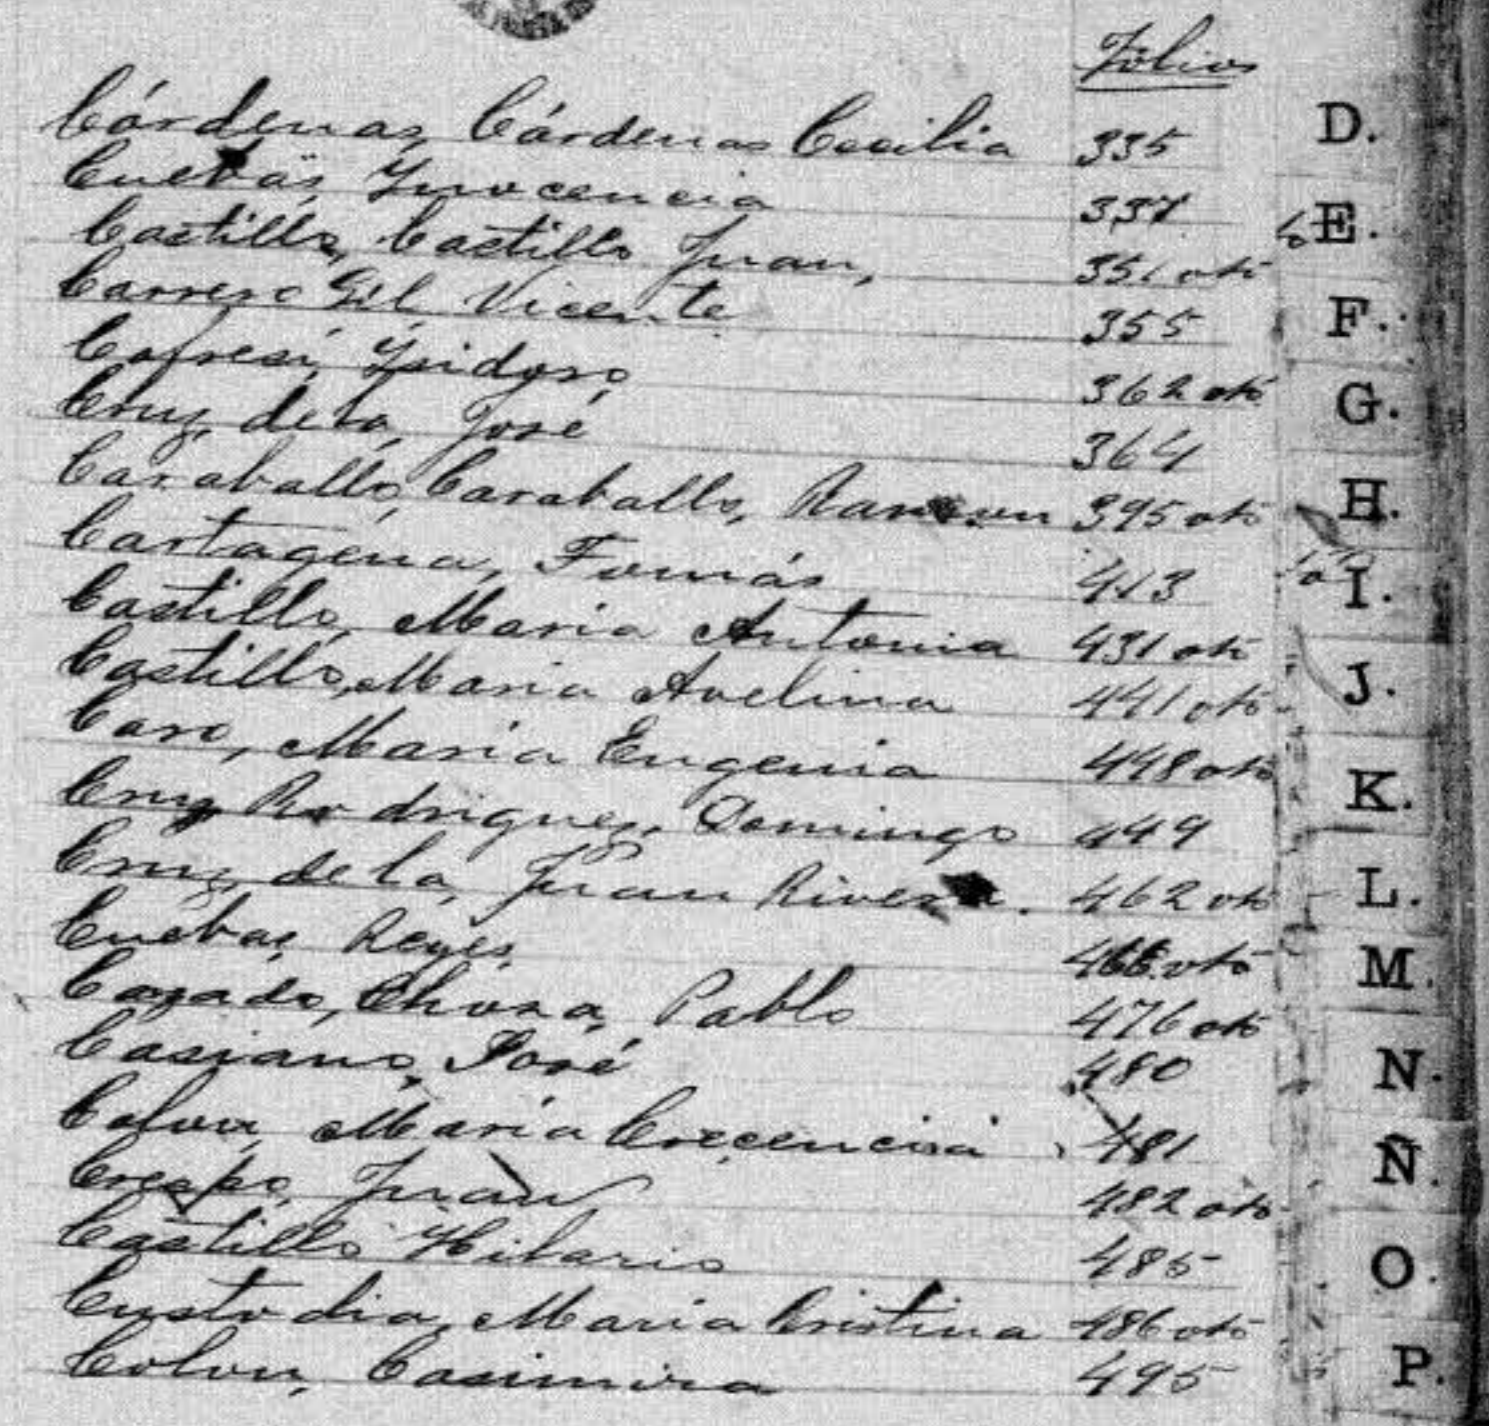 Fólios
Cárdenas, Cárdenas Cecilia 335
Cuebas, Ynocencia 337
Castillo, Castillo Juan, 351 vtō
Carrero Gil Vicente 355
Cofresí, Ysidoro, 362 vtō
Cruz, de la, José 364
Caraballo, Caraballo, Ramon 395 vtō
Cartagena, Tomás 413
Castillo, Maria Antonia 431 vtō
Castillo, Maria Avelina 441 vtō
Caro, Maria Eugenia 448 vtō
Cruz Rodriguez, Domingo 449
Cruz, de la, Juan Rivera. 462 vtō
Cuebas, Reyes, 466 vtō
Pablo 476 vtō
Casiano, José 480
Colon, Maria Crecencia 481
Crespo, Juan 482 vtō
Castillo Hilario 485
Custodia, Maria Cristina 486 vtō
Colon, Casimira 495
D.
E.
F.
G.
H.
I.
J.
K.
L.
M.
N.
Ñ.
O.
P.